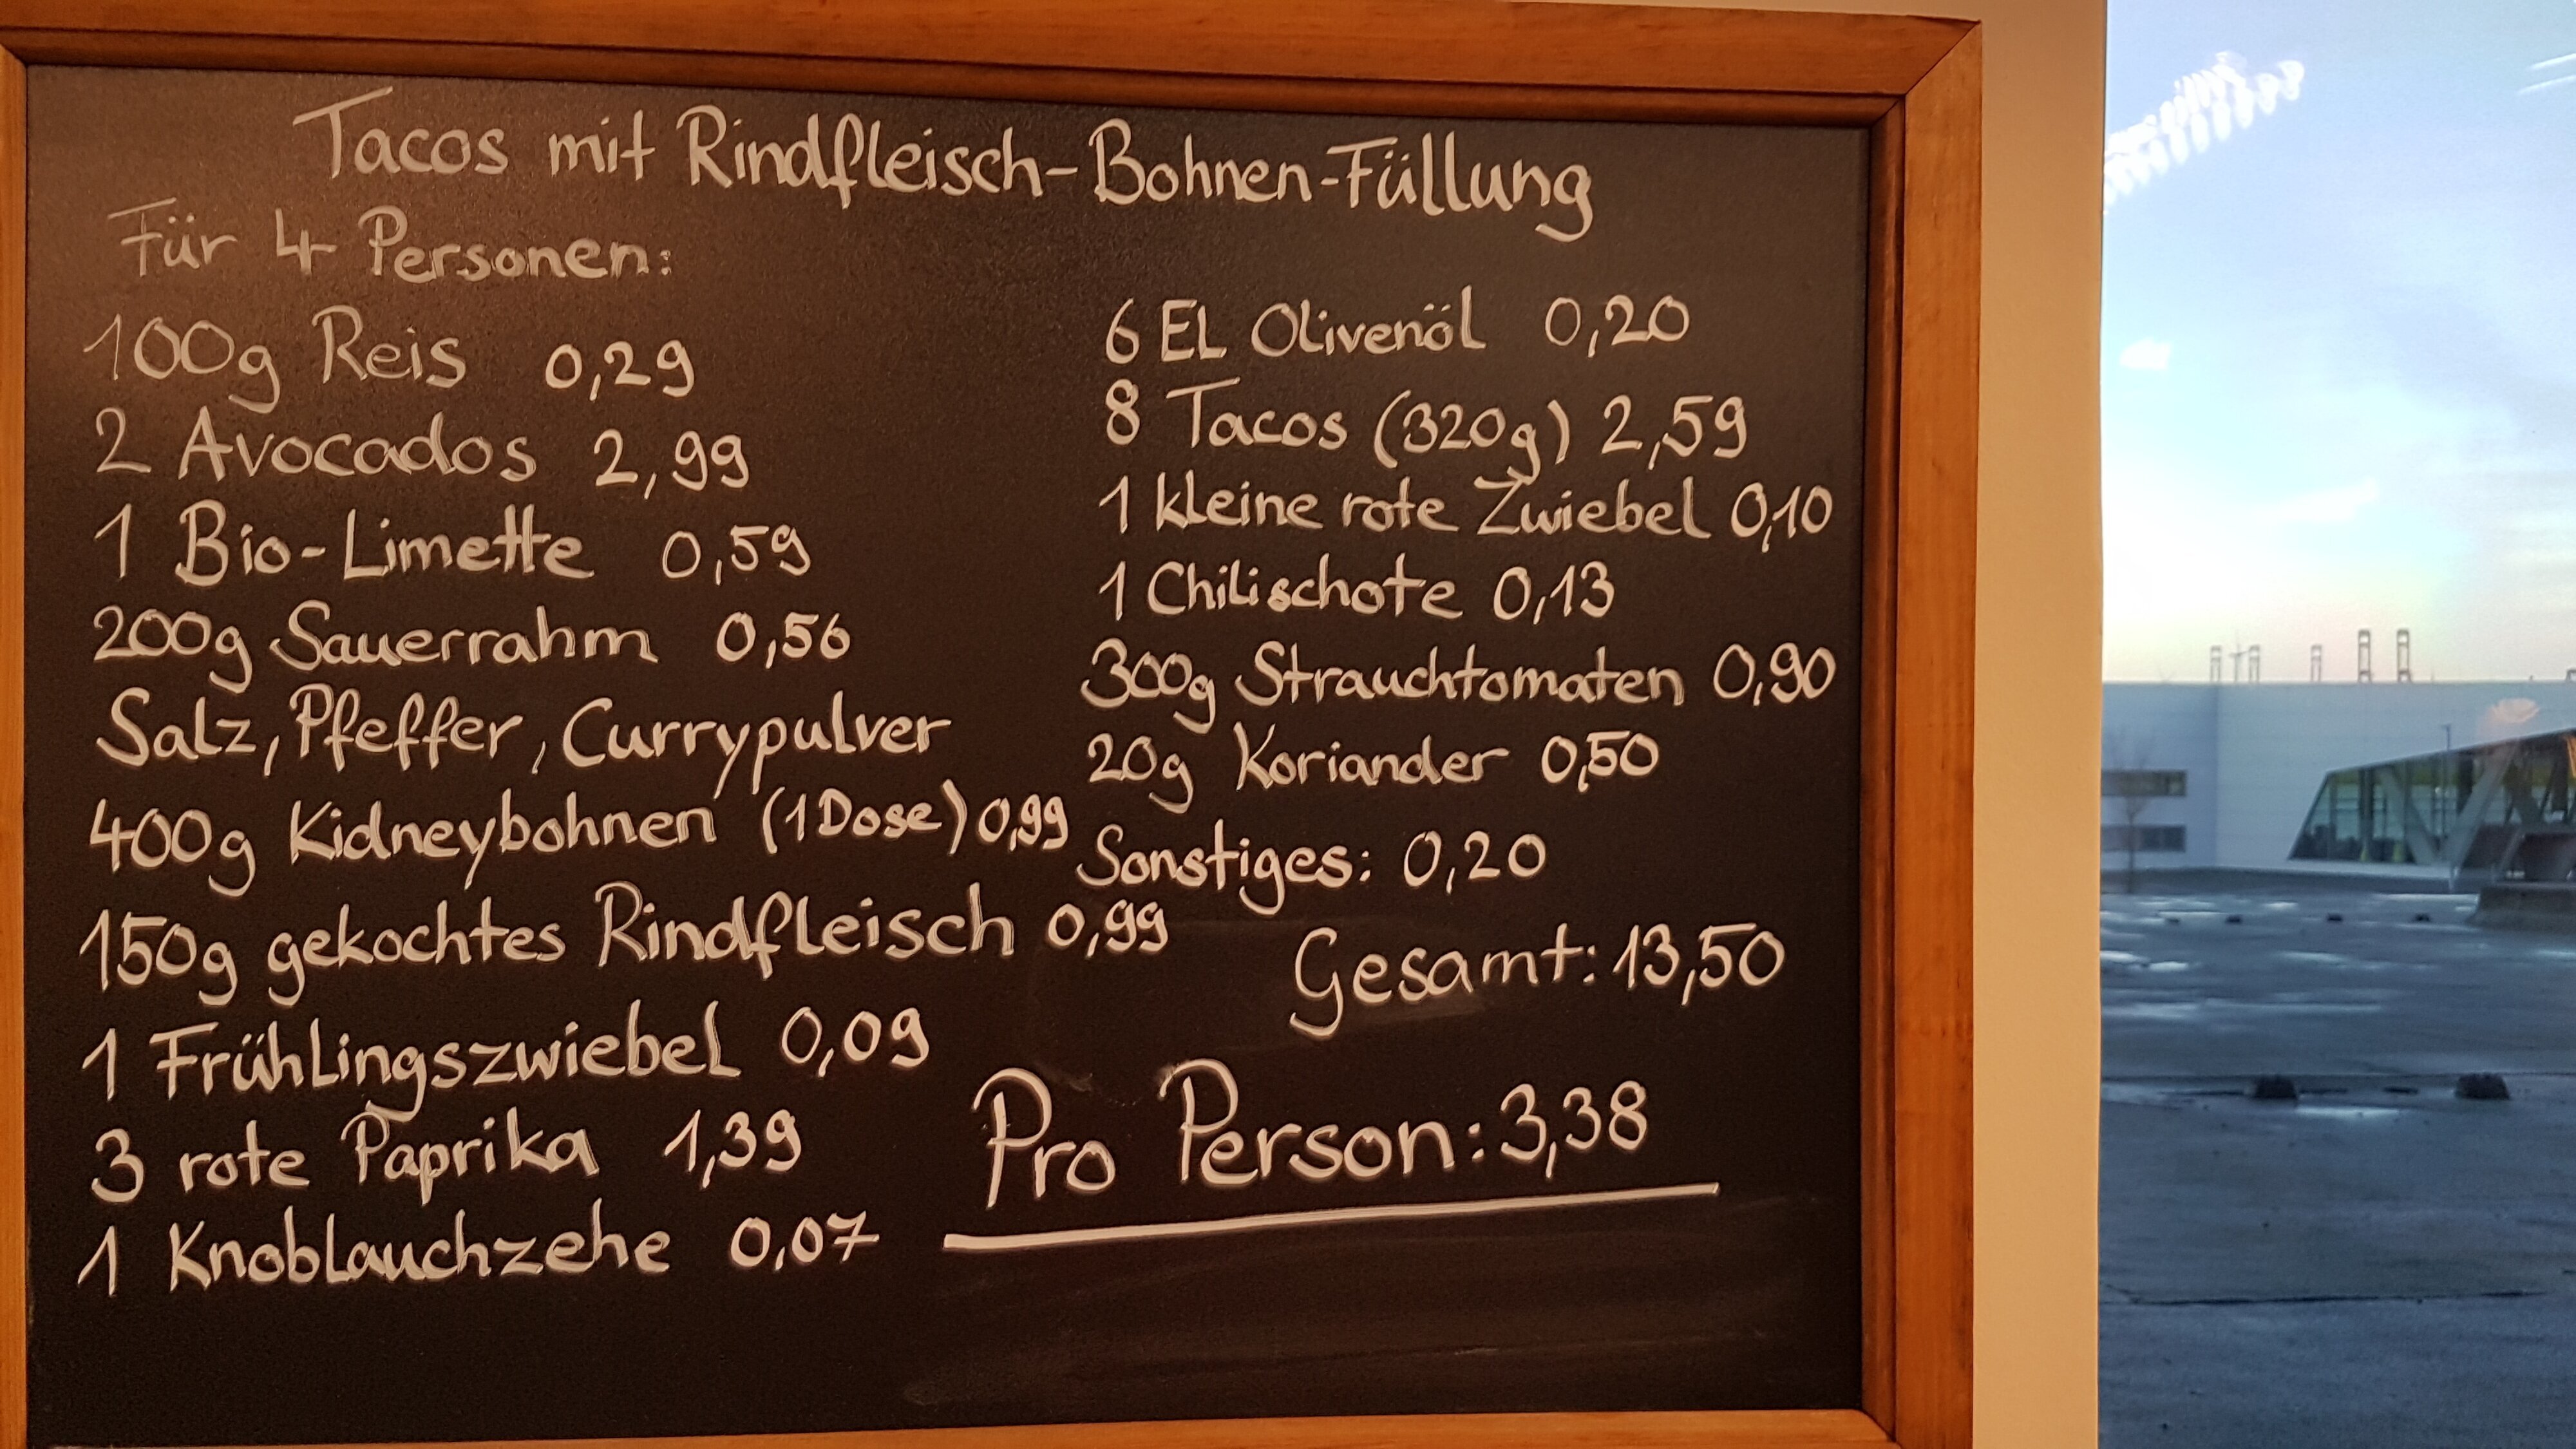 Tacos mit Rindfleisch-Bohnen-Füllung
Für 4 Personen:
100g Reis 0,29
2 Avocados 2,99
1 Bio-Limette 0,59
200g Sauerrahm 0,56
Salz, Pfeffer, Currypulver
400g Kidneybohnen (1 Dose) 0,99
150g gekochtes Rindfleisch 0,99
1 Frühlingszwiebel 0,09
3 rote Paprika 1,39
1 Knoblauchzehe 0,07
6 EL Olivenöl 0,20
8 Tacos (320g) 2,59
1 kleine rote Zwiebel 0,10
1 Chilischote 0,13
300g Strauchtomaten 0,90
20g Koriander 0,50
Sonstiges: 0,20
Gesamt: 13,50
Pro Person: 3,38